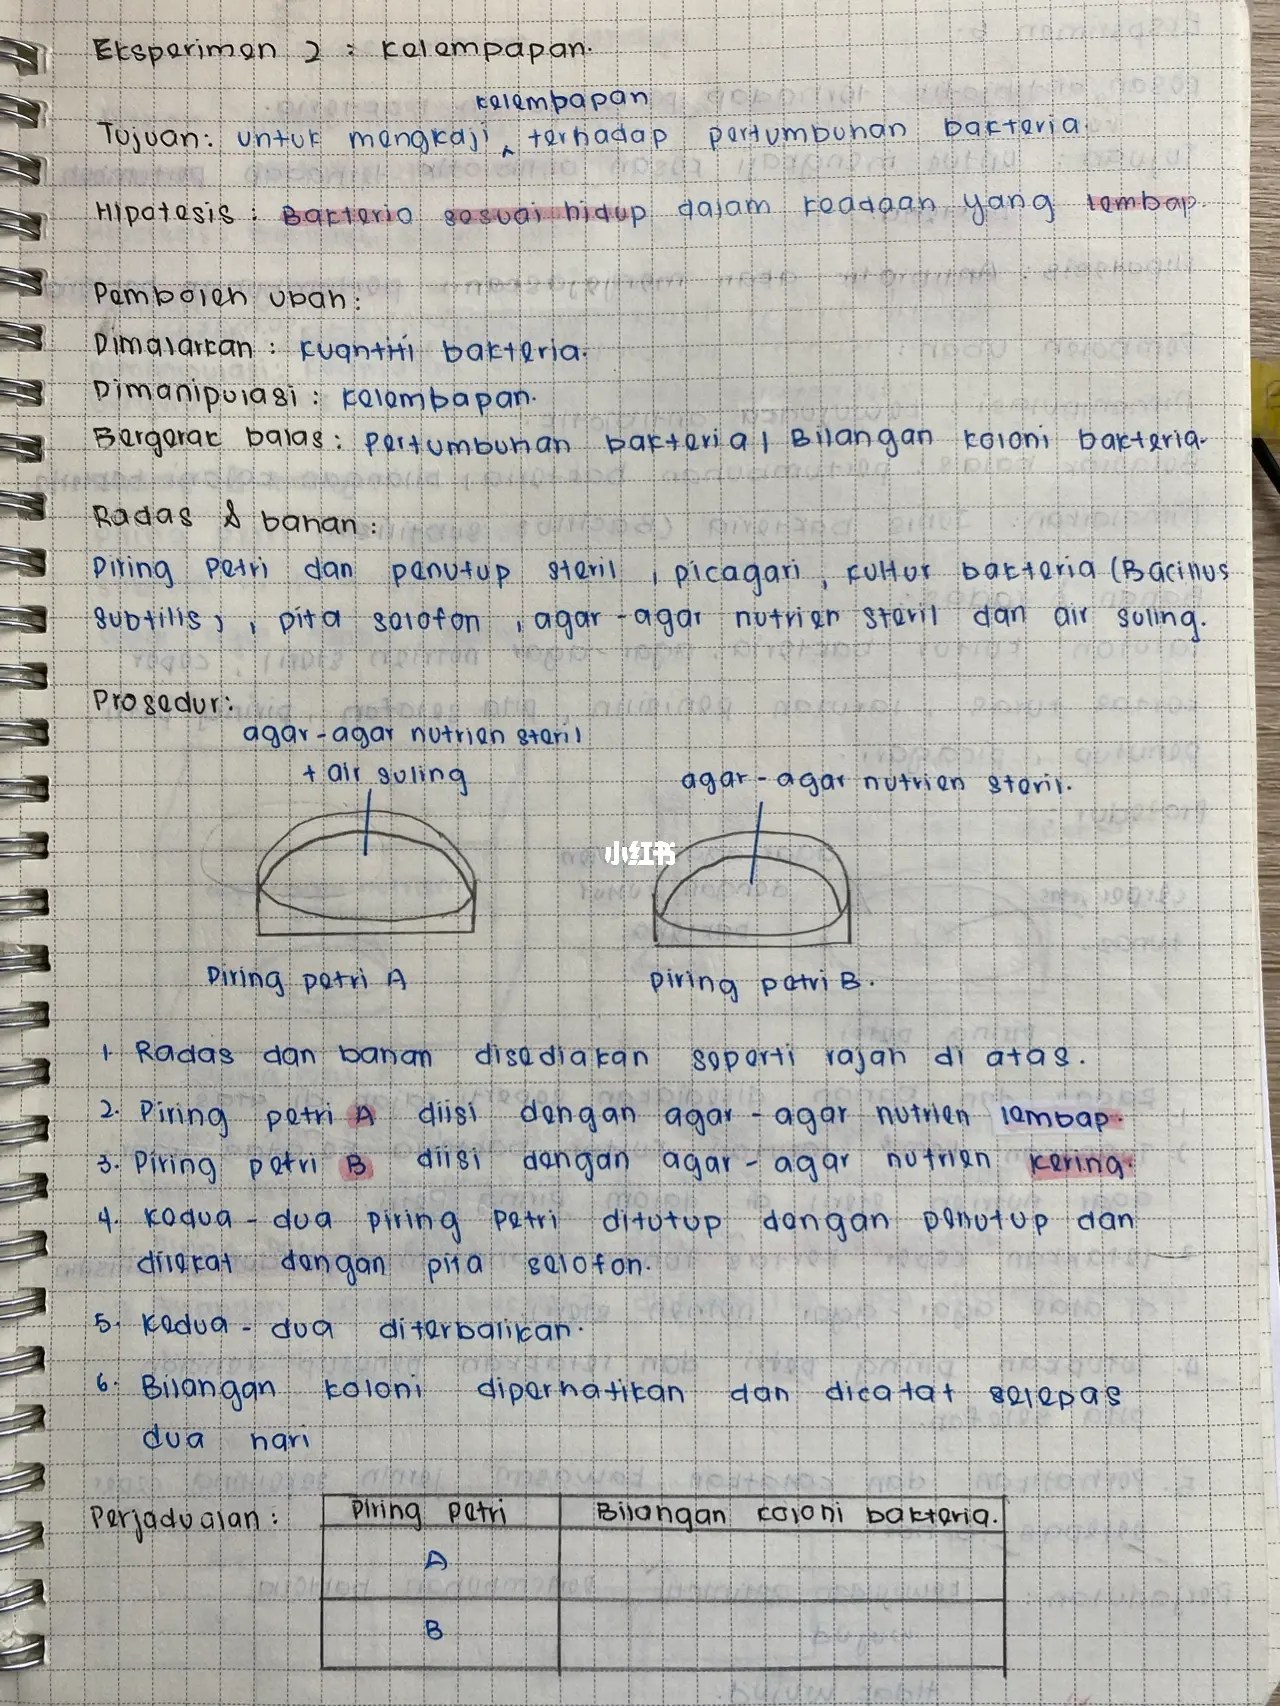 Eksperimen 2 : Kelempapan.
kelembapan
Tujuan: untuk mengkaji ^ terhadap pertumbuhan bakteria.
Hipotesis: Bakteria sesuai hidup dalam keadaan yang lembap.
Pemboleh ubah:
Dimalarkan : kuantiti bakteria.
Dimanipulasi : kelembapan.
Bergerak balas: Pertumbuhan bakteria / Bilangan koloni bakteria.
Radas & bahan:
Piring Petri dan penutup steril, picagari, kultur bakteria (Bacillus
subtilis), pita selofon, agar-agar nutrien steril dan air suling.
Prosedur:
agar-agar nutrien steril
+ air suling
agar-agar nutrien steril.
小红书
Piring petri A
Piring petri B.
1. Radas dan bahan disediakan seperti rajah di atas.
2. Piring petri A diisi dengan agar-agar nutrien lembap.
3. Piring petri B diisi dengan agar-agar nutrien kering.
4. Kedua-dua piring petri ditutup dengan penutup dan
dilekat dengan pita selofon.
5. Kedua-dua diterbalikan.
6. Bilangan koloni diperhatikan dan dicatat selepas
dua hari
Perjadualan:
Piring petri Bilangan koloni bakteria.
A
B